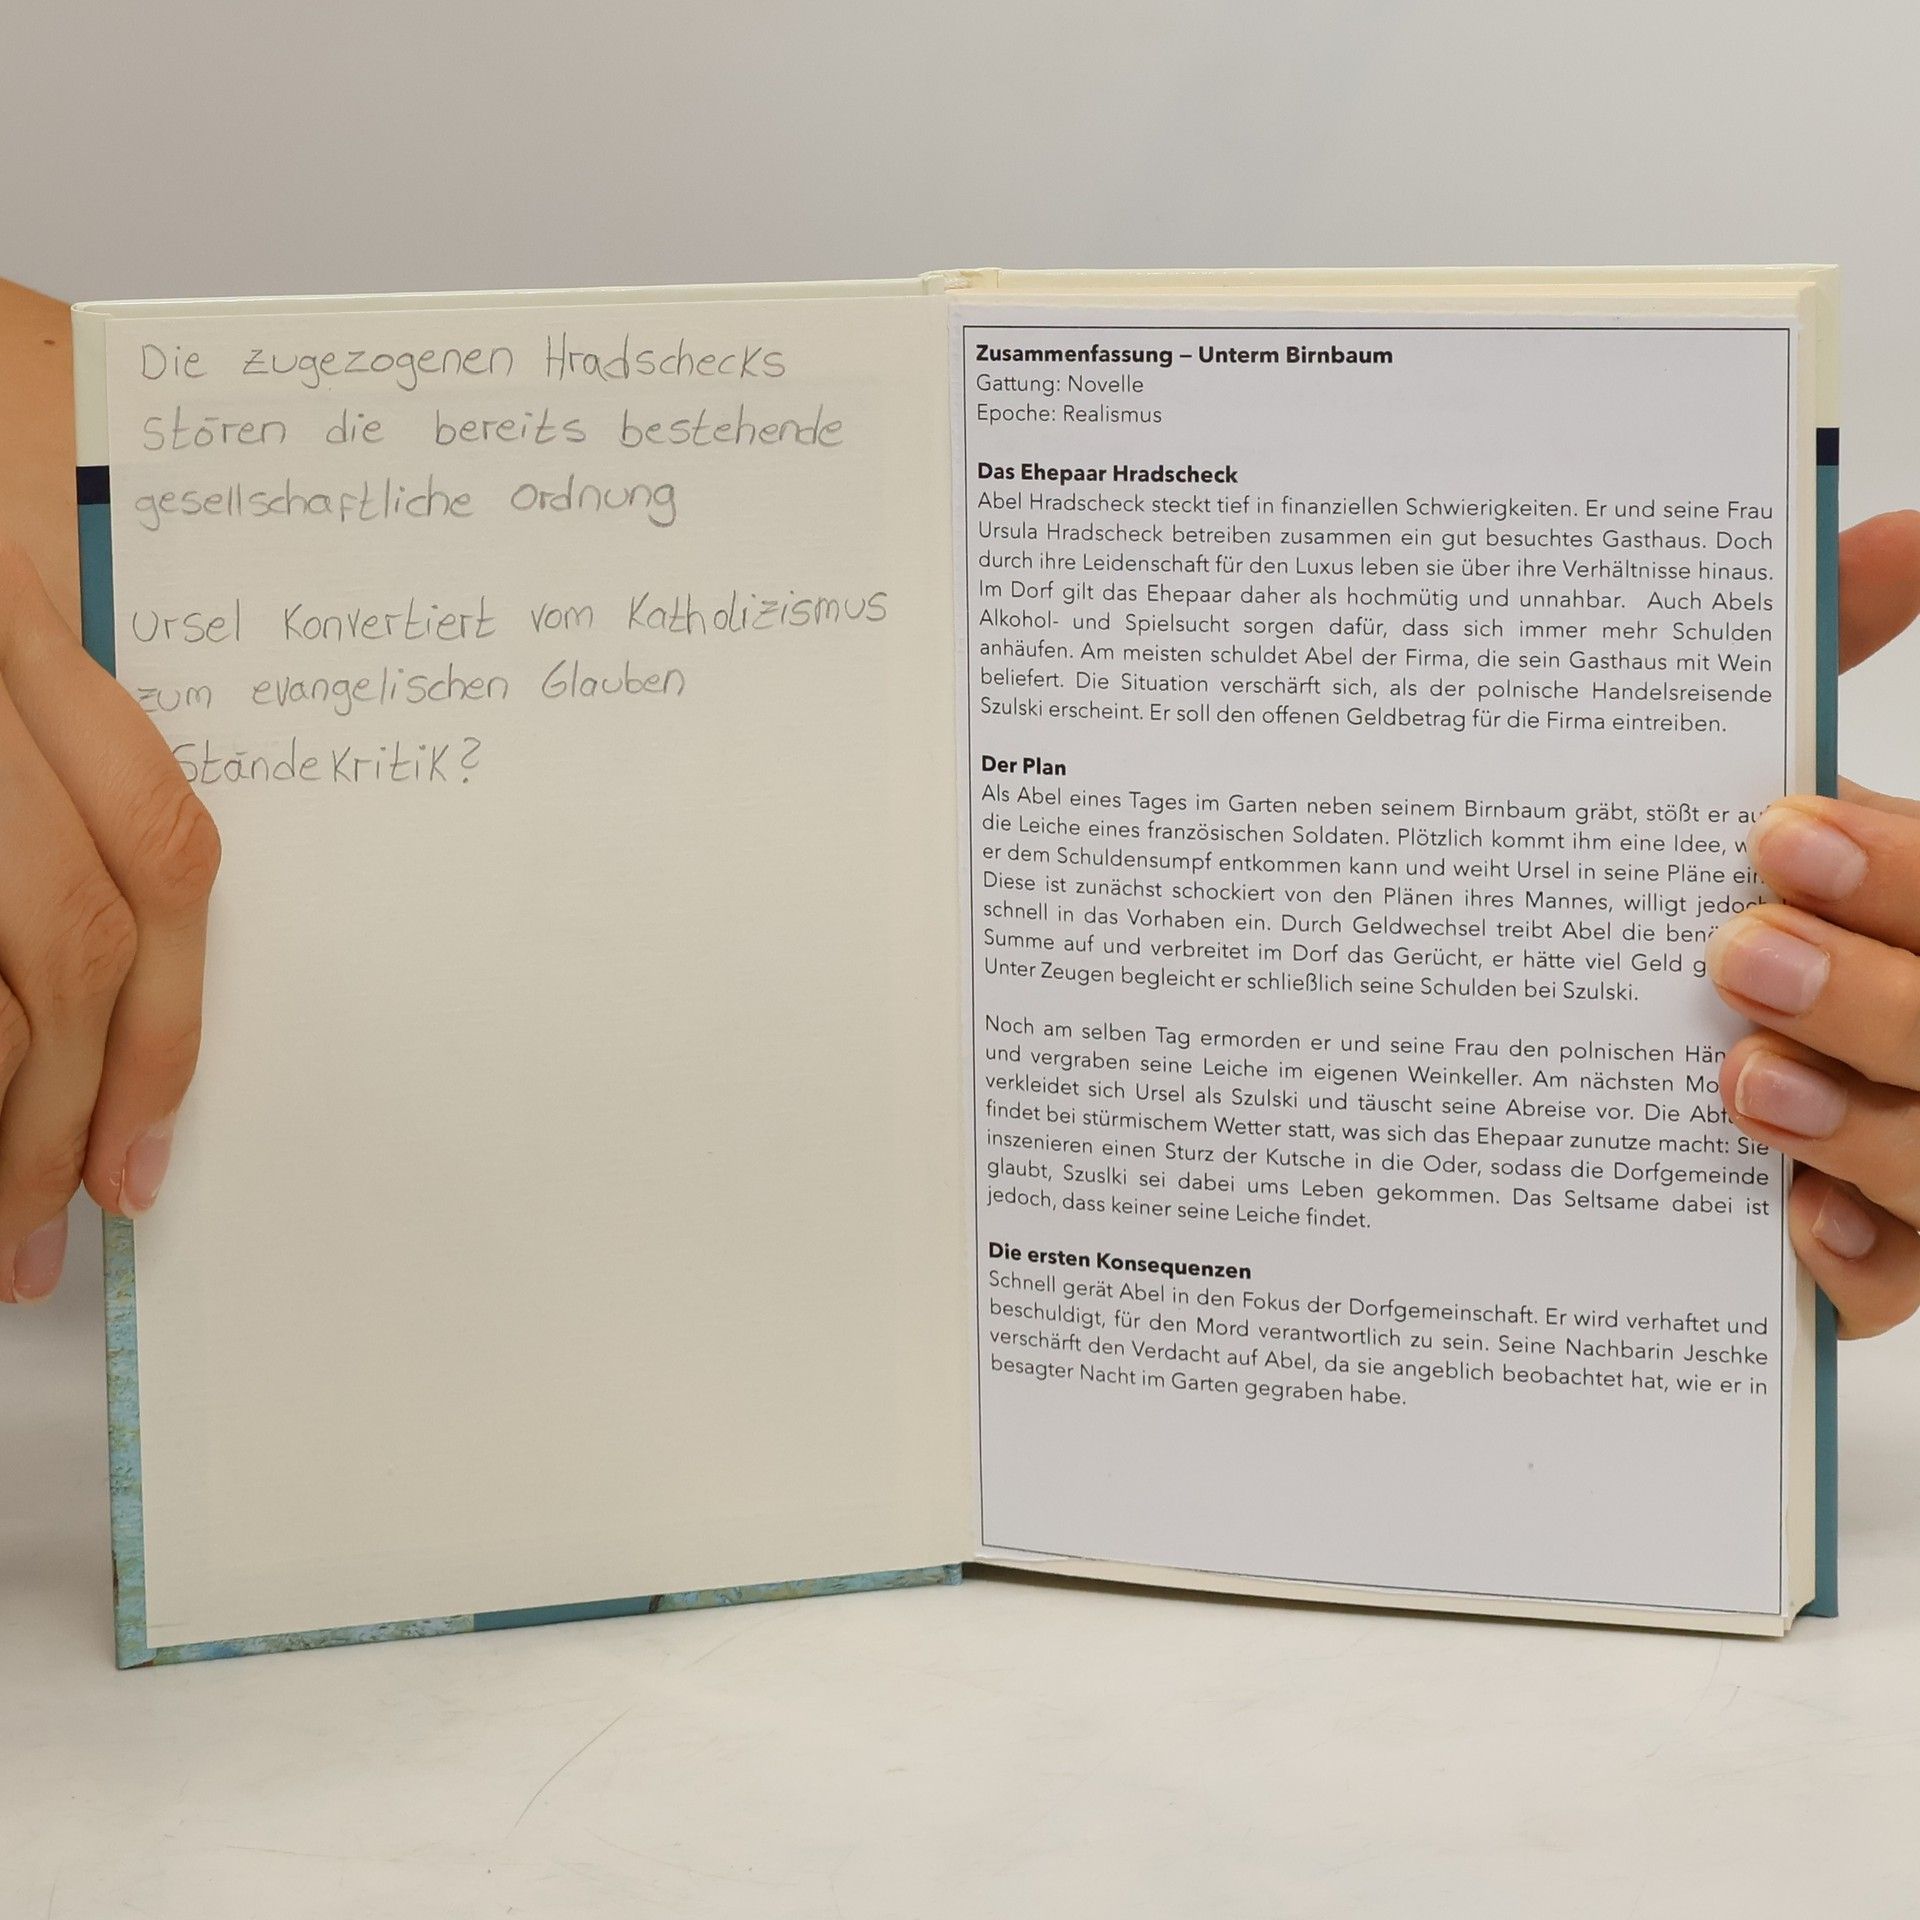 Die zugezogenen Hradschecks
stören die bereits bestehende
gesellschaftliche Ordnung
Ursel konvertiert vom Katholizismus
zum evangelischen Glauben
Ständekritik?
Zusammenfassung – Unterm Birnbaum
Gattung: Novelle
Epoche: Realismus
Das Ehepaar Hradscheck
Abel Hradscheck steckt tief in finanziellen Schwierigkeiten. Er und seine Frau
Ursula Hradscheck betreiben zusammen ein gut besuchtes Gasthaus. Doch
durch ihre Leidenschaft für den Luxus leben sie über ihre Verhältnisse hinaus.
Im Dorf gilt das Ehepaar daher als hochmütig und unnahbar. Auch Abels
Alkohol- und Spielsucht sorgen dafür, dass sich immer mehr Schulden
anhäufen. Am meisten schuldet Abel der Firma, die sein Gasthaus mit Wein
beliefert. Die Situation verschärft sich, als der polnische Handelsreisende
Szulski erscheint. Er soll den offenen Geldbetrag für die Firma eintreiben.
Der Plan
Als Abel eines Tages im Garten neben seinem Birnbaum gräbt, stößt er
die Leiche eines französischen Soldaten. Plötzlich kommt ihm eine Idee,
er dem Schuldensumpf entkommen kann und weiht Ursel in seine Pläne ein.
Diese ist zunächst schockiert von den Plänen ihres Mannes, willigt jedoch
schnell in das Vorhaben ein. Durch Geldwechsel treibt Abel die
Summe auf und verbreitet im Dorf das Gerücht, er hätte viel Geld
Unter Zeugen begleicht er schließlich seine Schulden bei Szulski.
Noch am selben Tag ermorden er und seine Frau den polnischen
und vergraben seine Leiche im eigenen Weinkeller. Am nächsten
verkleidet sich Ursel als Szulski und täuscht seine Abreise vor. Die
findet bei stürmischem Wetter statt, was sich das Ehepaar zunutze macht: Sie
inszenieren einen Sturz der Kutsche in die Oder, sodass die Dorfgemeinde
glaubt, Szuslki sei dabei ums Leben gekommen. Das Seltsame dabei ist
jedoch, dass keiner seine Leiche findet.
Die ersten Konsequenzen
Schnell gerät Abel in den Fokus der Dorfgemeinschaft. Er wird verhaftet und
beschuldigt, für den Mord verantwortlich zu sein. Seine Nachbarin Jeschke
verschärft den Verdacht auf Abel, da sie angeblich beobachtet hat, wie er in
besagter Nacht im Garten gegraben habe.